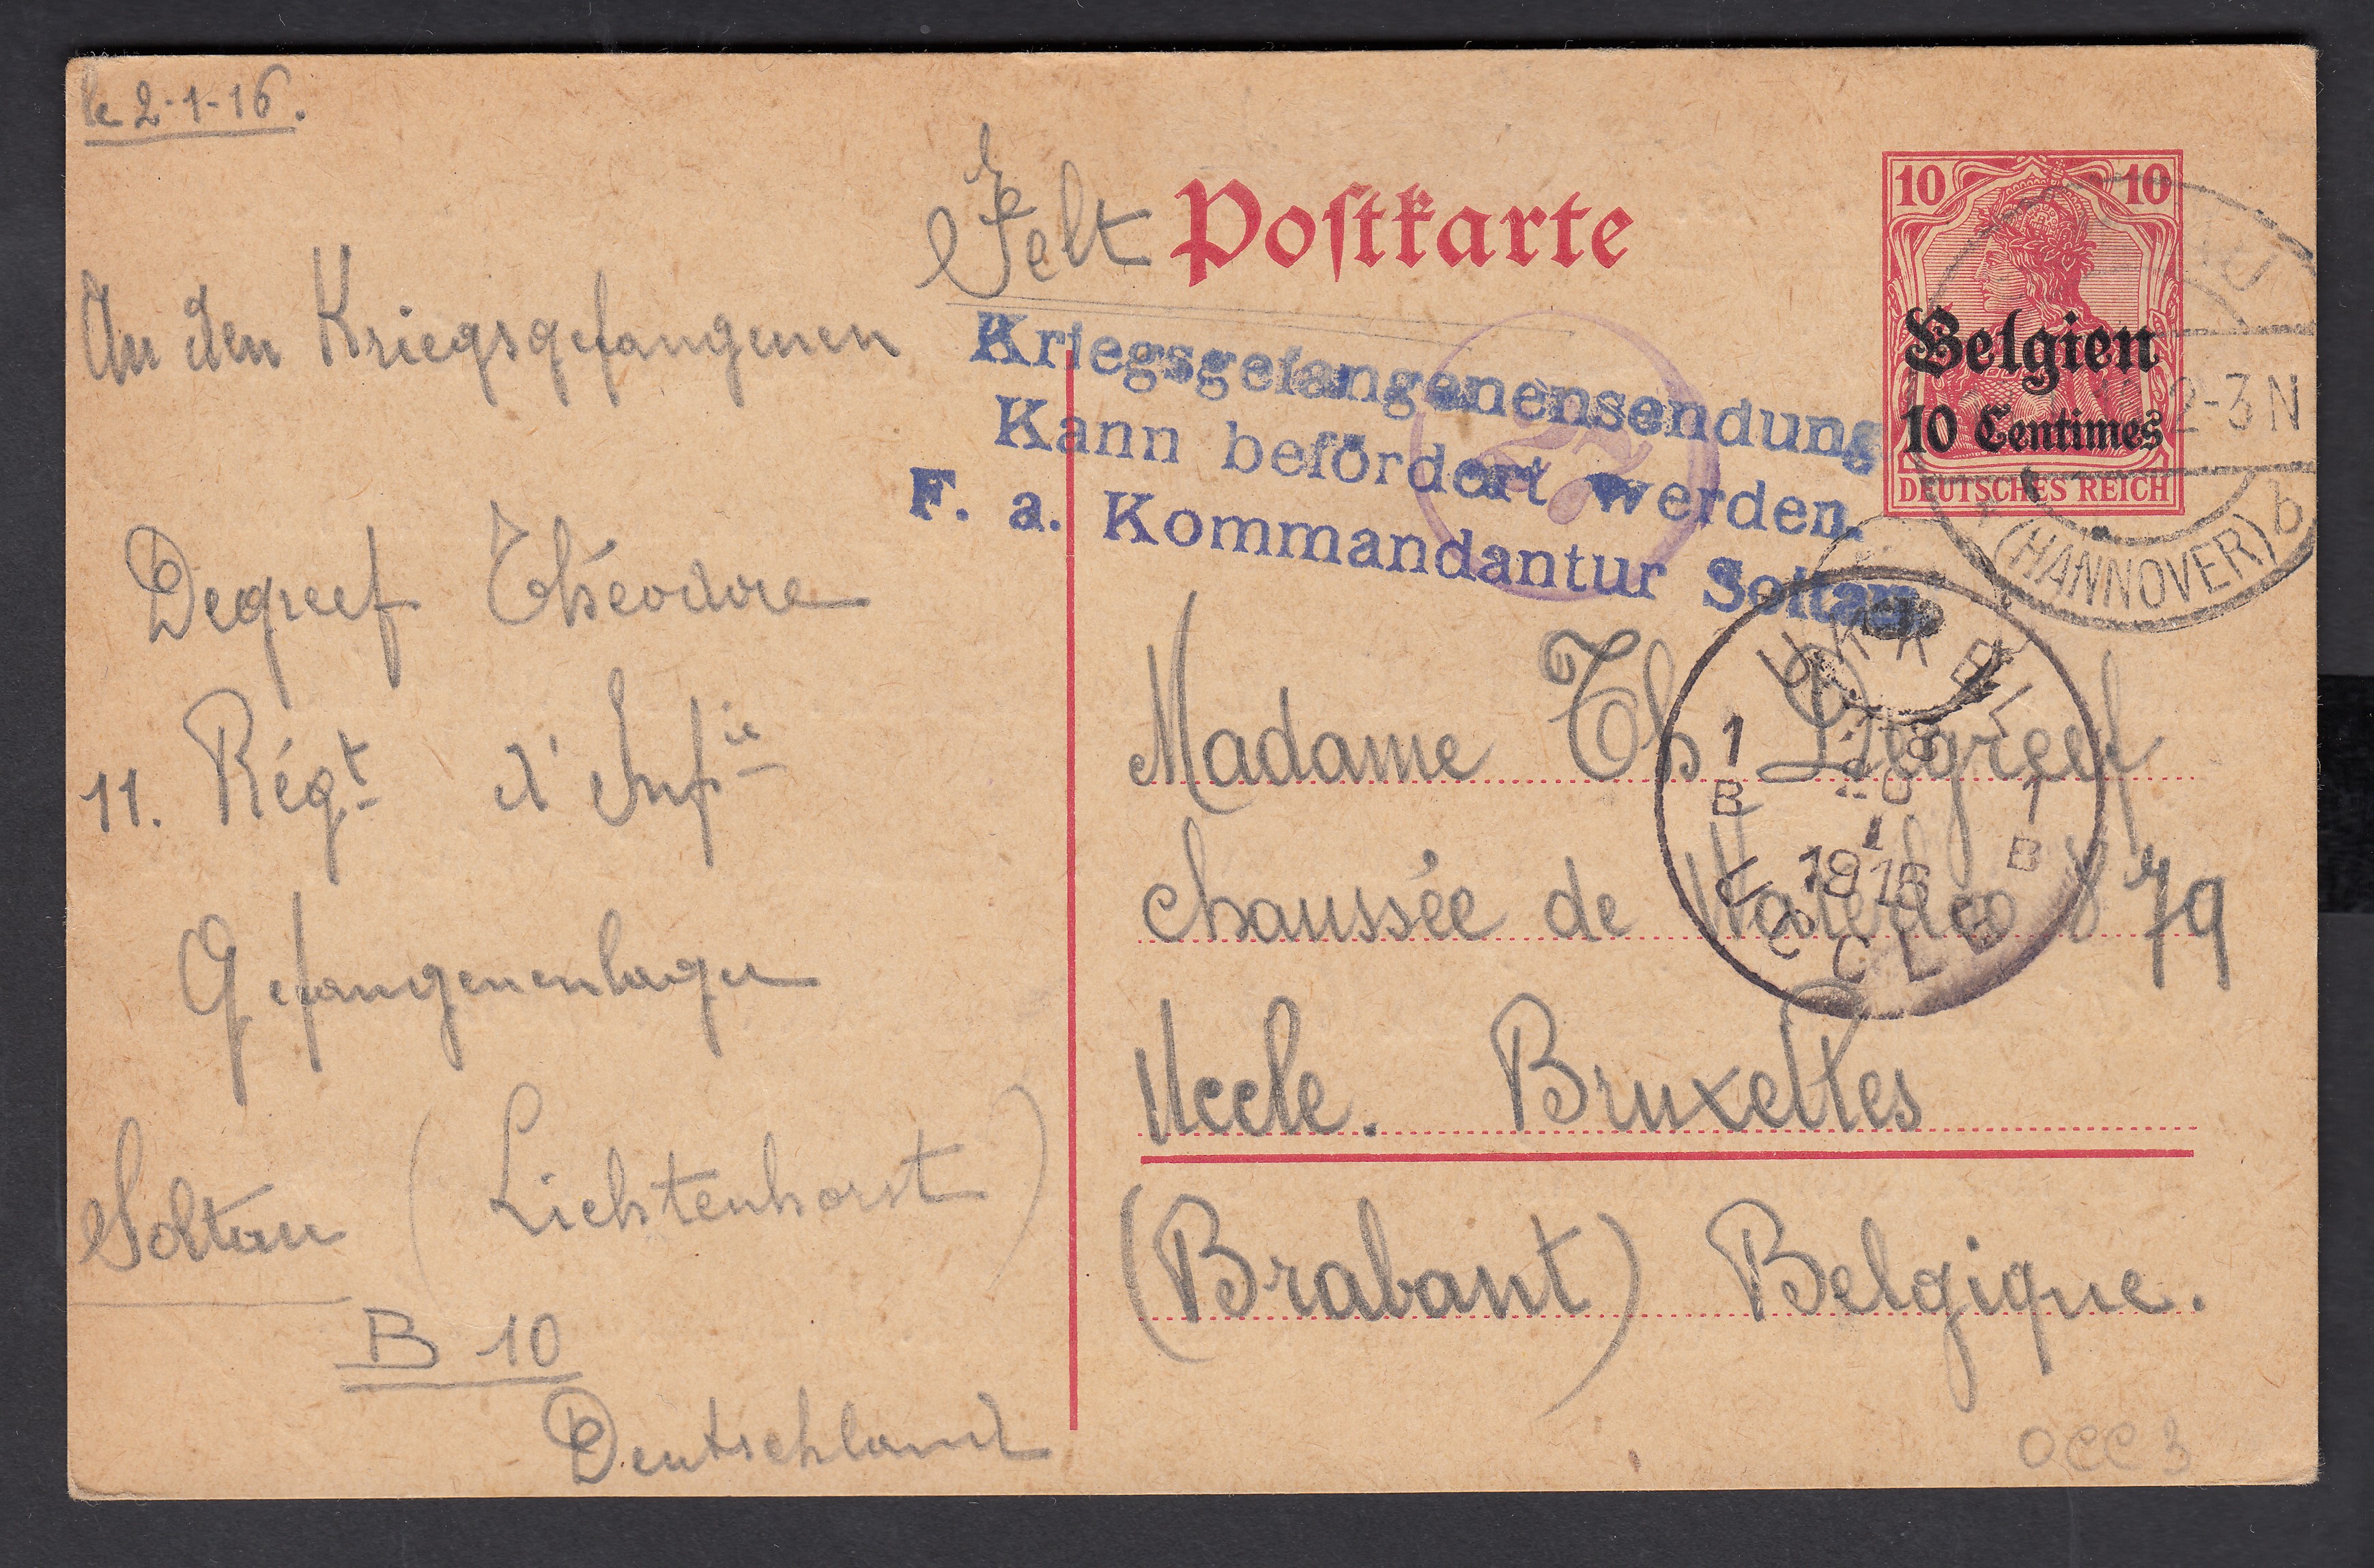 le 2-1-16.
Felt Postkarte
10 10
Belgien
10 Centimes
DEUTSCHES REICH
2-3N
(HANNOVER) b
Kriegsgefangenensendung
Kann befördert werden.
F. a. Kommandantur Soltau.
27
An den Kriegsgefangenen
Degreef Théodore
11. Régt d'Infie
Gefangenenlager
Soltau (Lichtenhorst)
B 10
Deutschland
UKKEL
1 1
B B
1916
UCCLE
Madame Th Degreef
chaussée de Waterloo 879
Uccle. Bruxelles
(Brabant) Belgique.
OCC 3